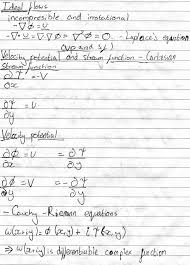 Ideal flows
incompressible and irrotational
-∇φ = u
-∇·u = -∇·∇φ = ∇²φ = 0 - Laplace's equation
Velocity potential and stream function - Cartesian
Stream function
∂Ψ/∂x = -V
∂Ψ/∂y = U
Velocity potential
∂φ/∂x = U = ∂Ψ/∂y
∂φ/∂y = V = -∂Ψ/∂x
- Cauchy - Riemann equations
w(x+iy) = φ(x,y) + iΨ(x,y)
⇒ w(x+iy) is differentiable complex function